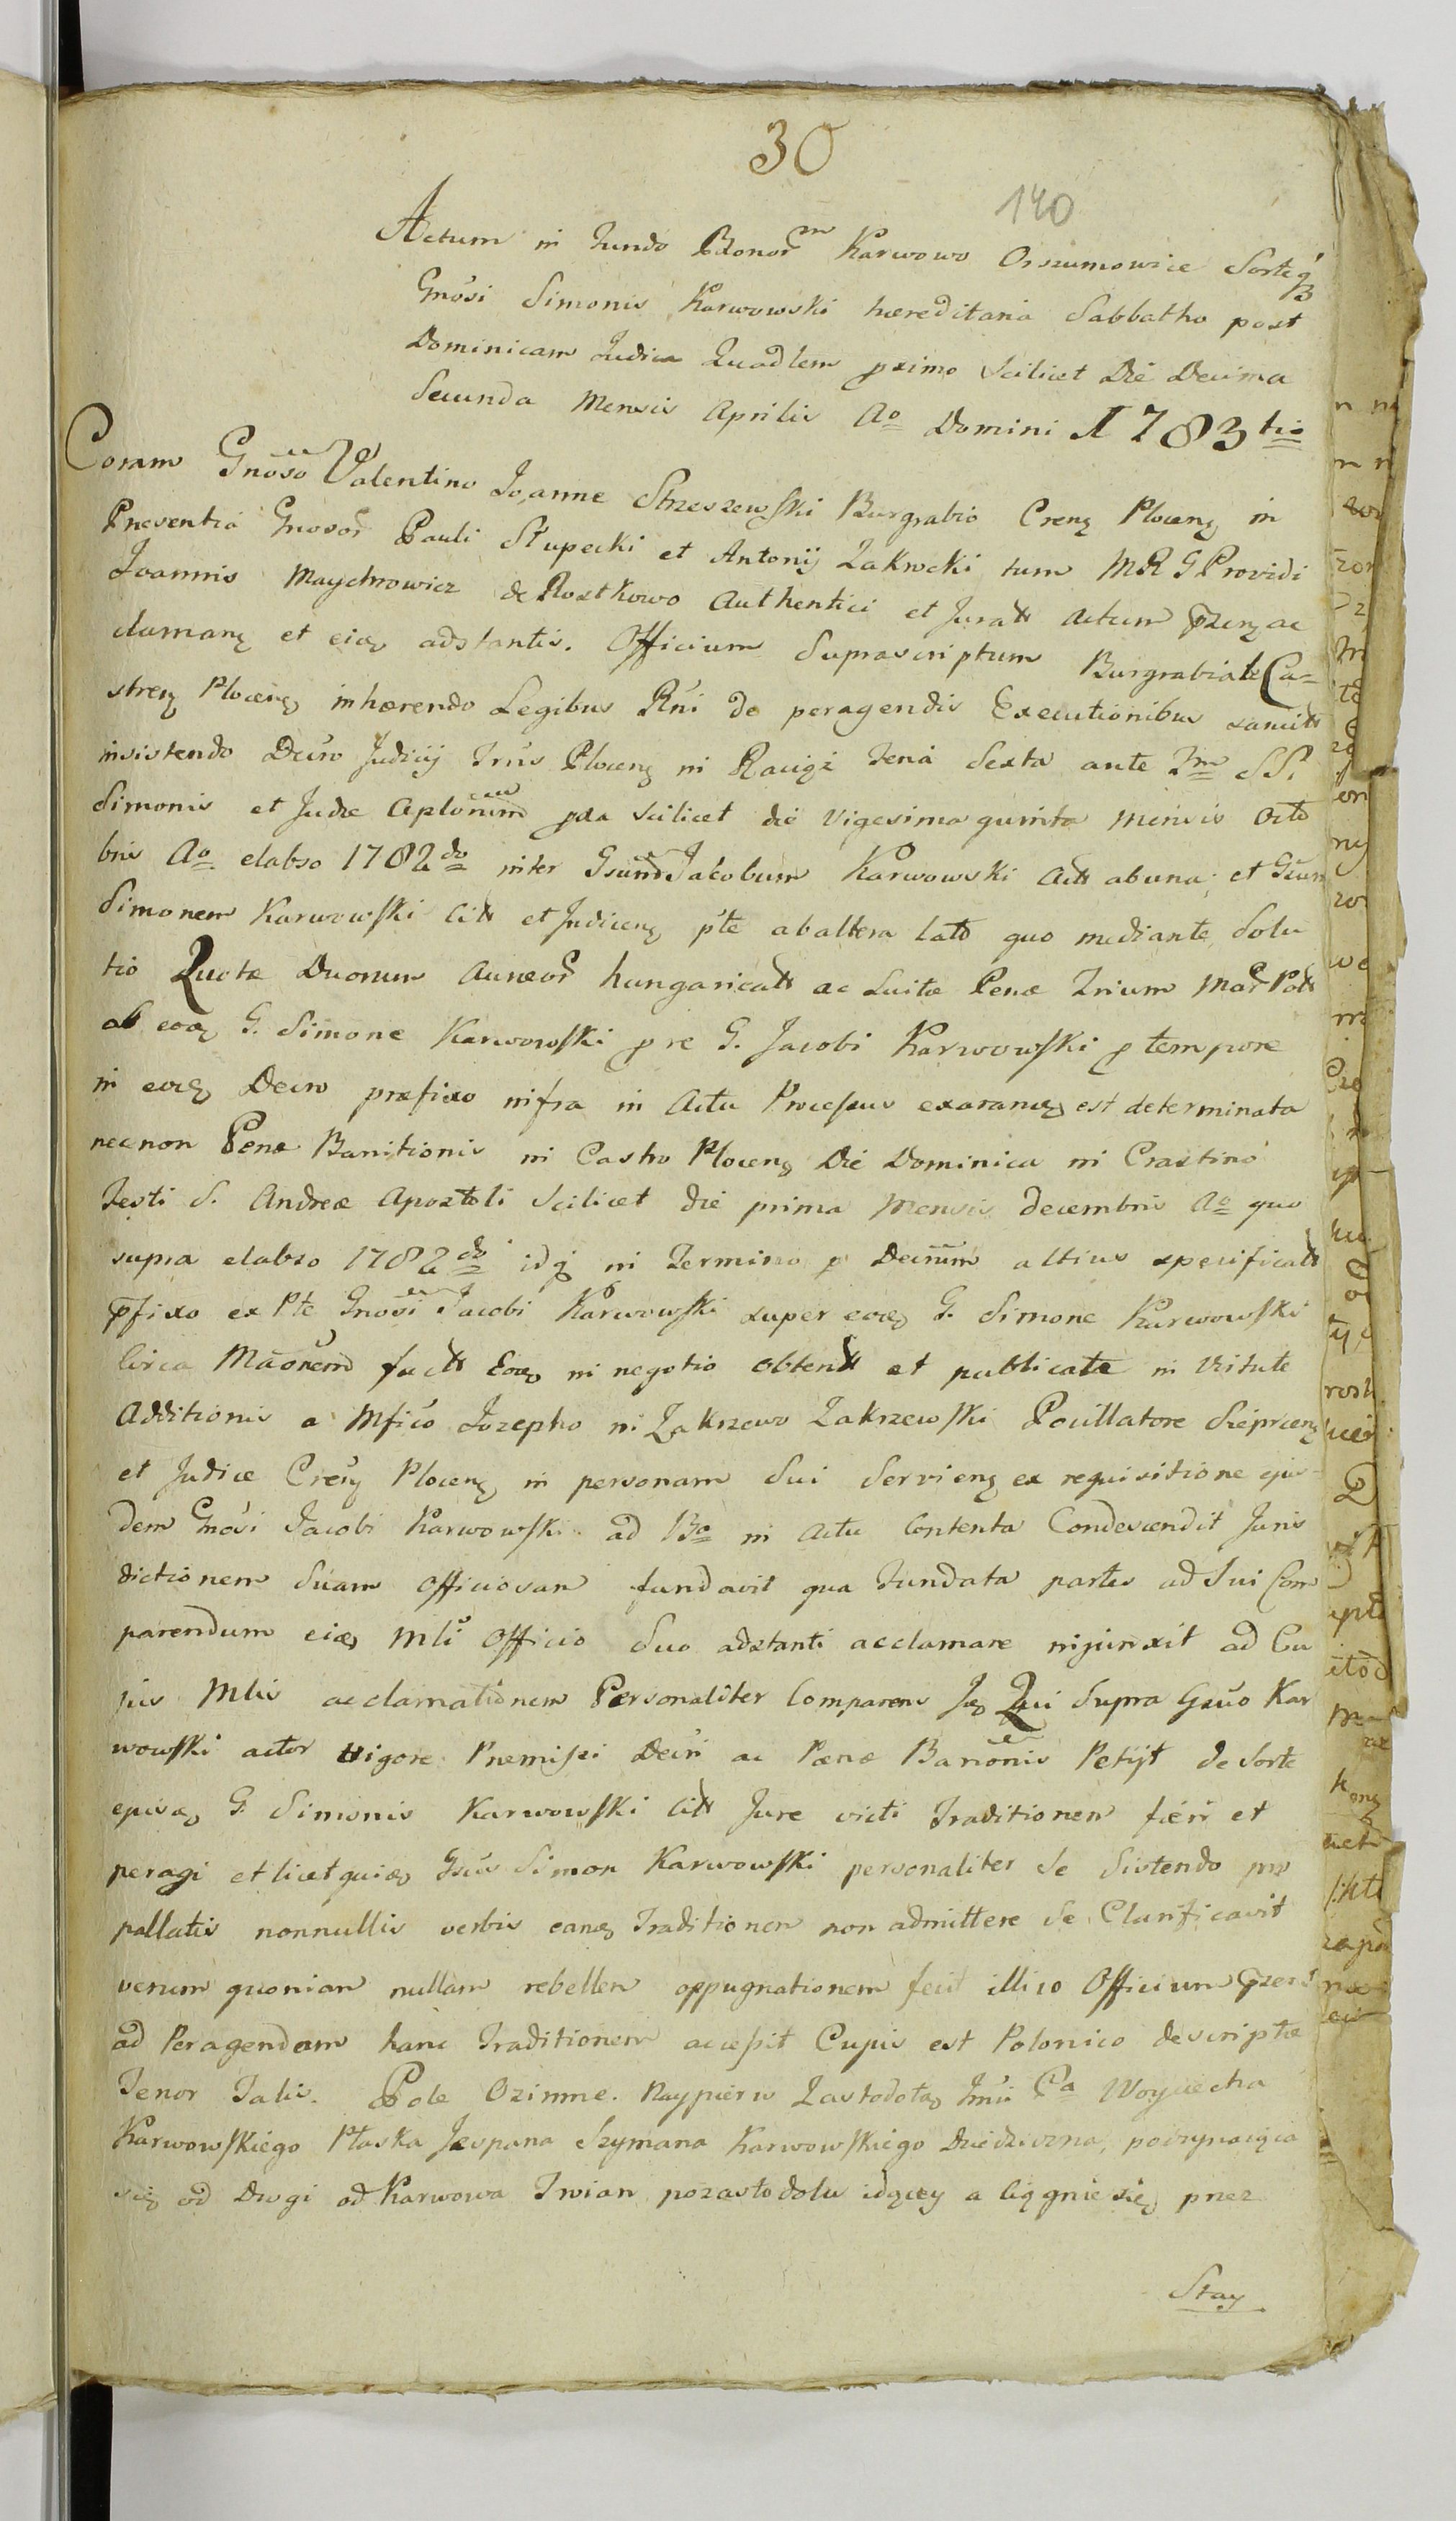 30
140
Actum in Fundo Bonor͠m Karwowo Orszumowice Sorteq́
Gnosi Simonis Karwowski hæreditaria Sabbatho post
Dominicam Judica Quadlem proximo scilicet Die Decima
Secunda Mensis Aprilis Ao Domini 1783tio
Coram Gnoso Valentino Joanne Strzeszewski Burgrabio Creng Ploceng in
Presentia Gnosor Pauli Słupecki et Antonij Zakrocki tum MRG Providi
Joannis Maychrowicz de Rostkowo Authentici et Jurati Actum przeng ac
clamang et eidg adstantis. Officium Suprascriptum Burgrabiale Ca=
streng Ploceng inhærendo Legibus Rni de peragendis Executionibus sancitis
insistendo Decro Judicij Trris Ploceng in Raciąż Feria Sexta ante Fm SS.
Simonis et Judæ Aplorum pxa scilicet die Vigesima quinta Mensis Octo
bris Ao elabso 1782do inter Gsum Jacobum Karwowski Act ab una, et Gsum
Simonem Karwowski Cit et Judiceng pte ab altera lato quo mediante, Solu
tio Quotæ Duorum Aureor hungaricalt ac Luitæ Penæ Trium Mar Pol
ab eodg G. Simone Karwowski p re G. Jacobi Karwowski p tempore
in eodg Decro præfixo infra in Actu Processus exarandg est determinata
necnon Penæ Banitionis in Castro Ploceng Die Dominica in Crastino
Festi S. Andreæ Apostoli Scilicet die prima Mensis Decembris Ao quo
supra elabso 1782do idq in Termino p Decrum altius specificat
p̄fixo ex Pte Gnosi Jacobi Karwowski super eodg G. Simone Karwowski
Circa Maonem fact Eodg in negotio obtent et publicatæ in Virtute
Additionis a Mfico Josepho in Zakrzewo Zakrzewski Pocillatore Sierpceng
et Judice Creng Ploceng in personam Sui Servieng ex requisitione ejus=
dem Gnosi Jacobi Karwowski ad Ba in Actu Contenta Condescendit Juris
dictionem Suam Officiosam fundavit qua Fundata partes ad Sui Com
parendum eidg Mli Officio Suo adstanti acclamare injunxit ad Cu
jus Mlis acclamationem Personaliter Comparens Jdg Qui Supra Gsus Kar
wowski actor vigore Præmissi Decri ac Pænæ Banonis Petijt de Sorte
ejusdg G. Simonis Karwowski Cit Jure victi Traditionem fieri et
peragi et licet quidg Gsus Simon Karwowski personaliter Se Sistendo pro
pallatis nonnullis verbis eandg Traditionem non admittere Se Clarificavit
verum quoniam nullam rebellem oppugnationem fecit illico Officium przens
ad Peragendam hanc Traditionem accessit Cujus est Polonico descriptæ
Tenor Talis. Pole Ozimne. Naypierw Zastodołą Jmci Pa Woyciecha
Karwowskiego Płaska Jegpana Szymana Karwowskiego Dziedziczna, poczynaiąca
się od Drogi od Karwowa Trwian pozastodolu idącey a ciągnie się przez
Stay